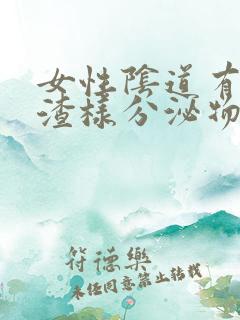 女性陰道有
渣樣分泌物
符德樂
未经同意禁止转载